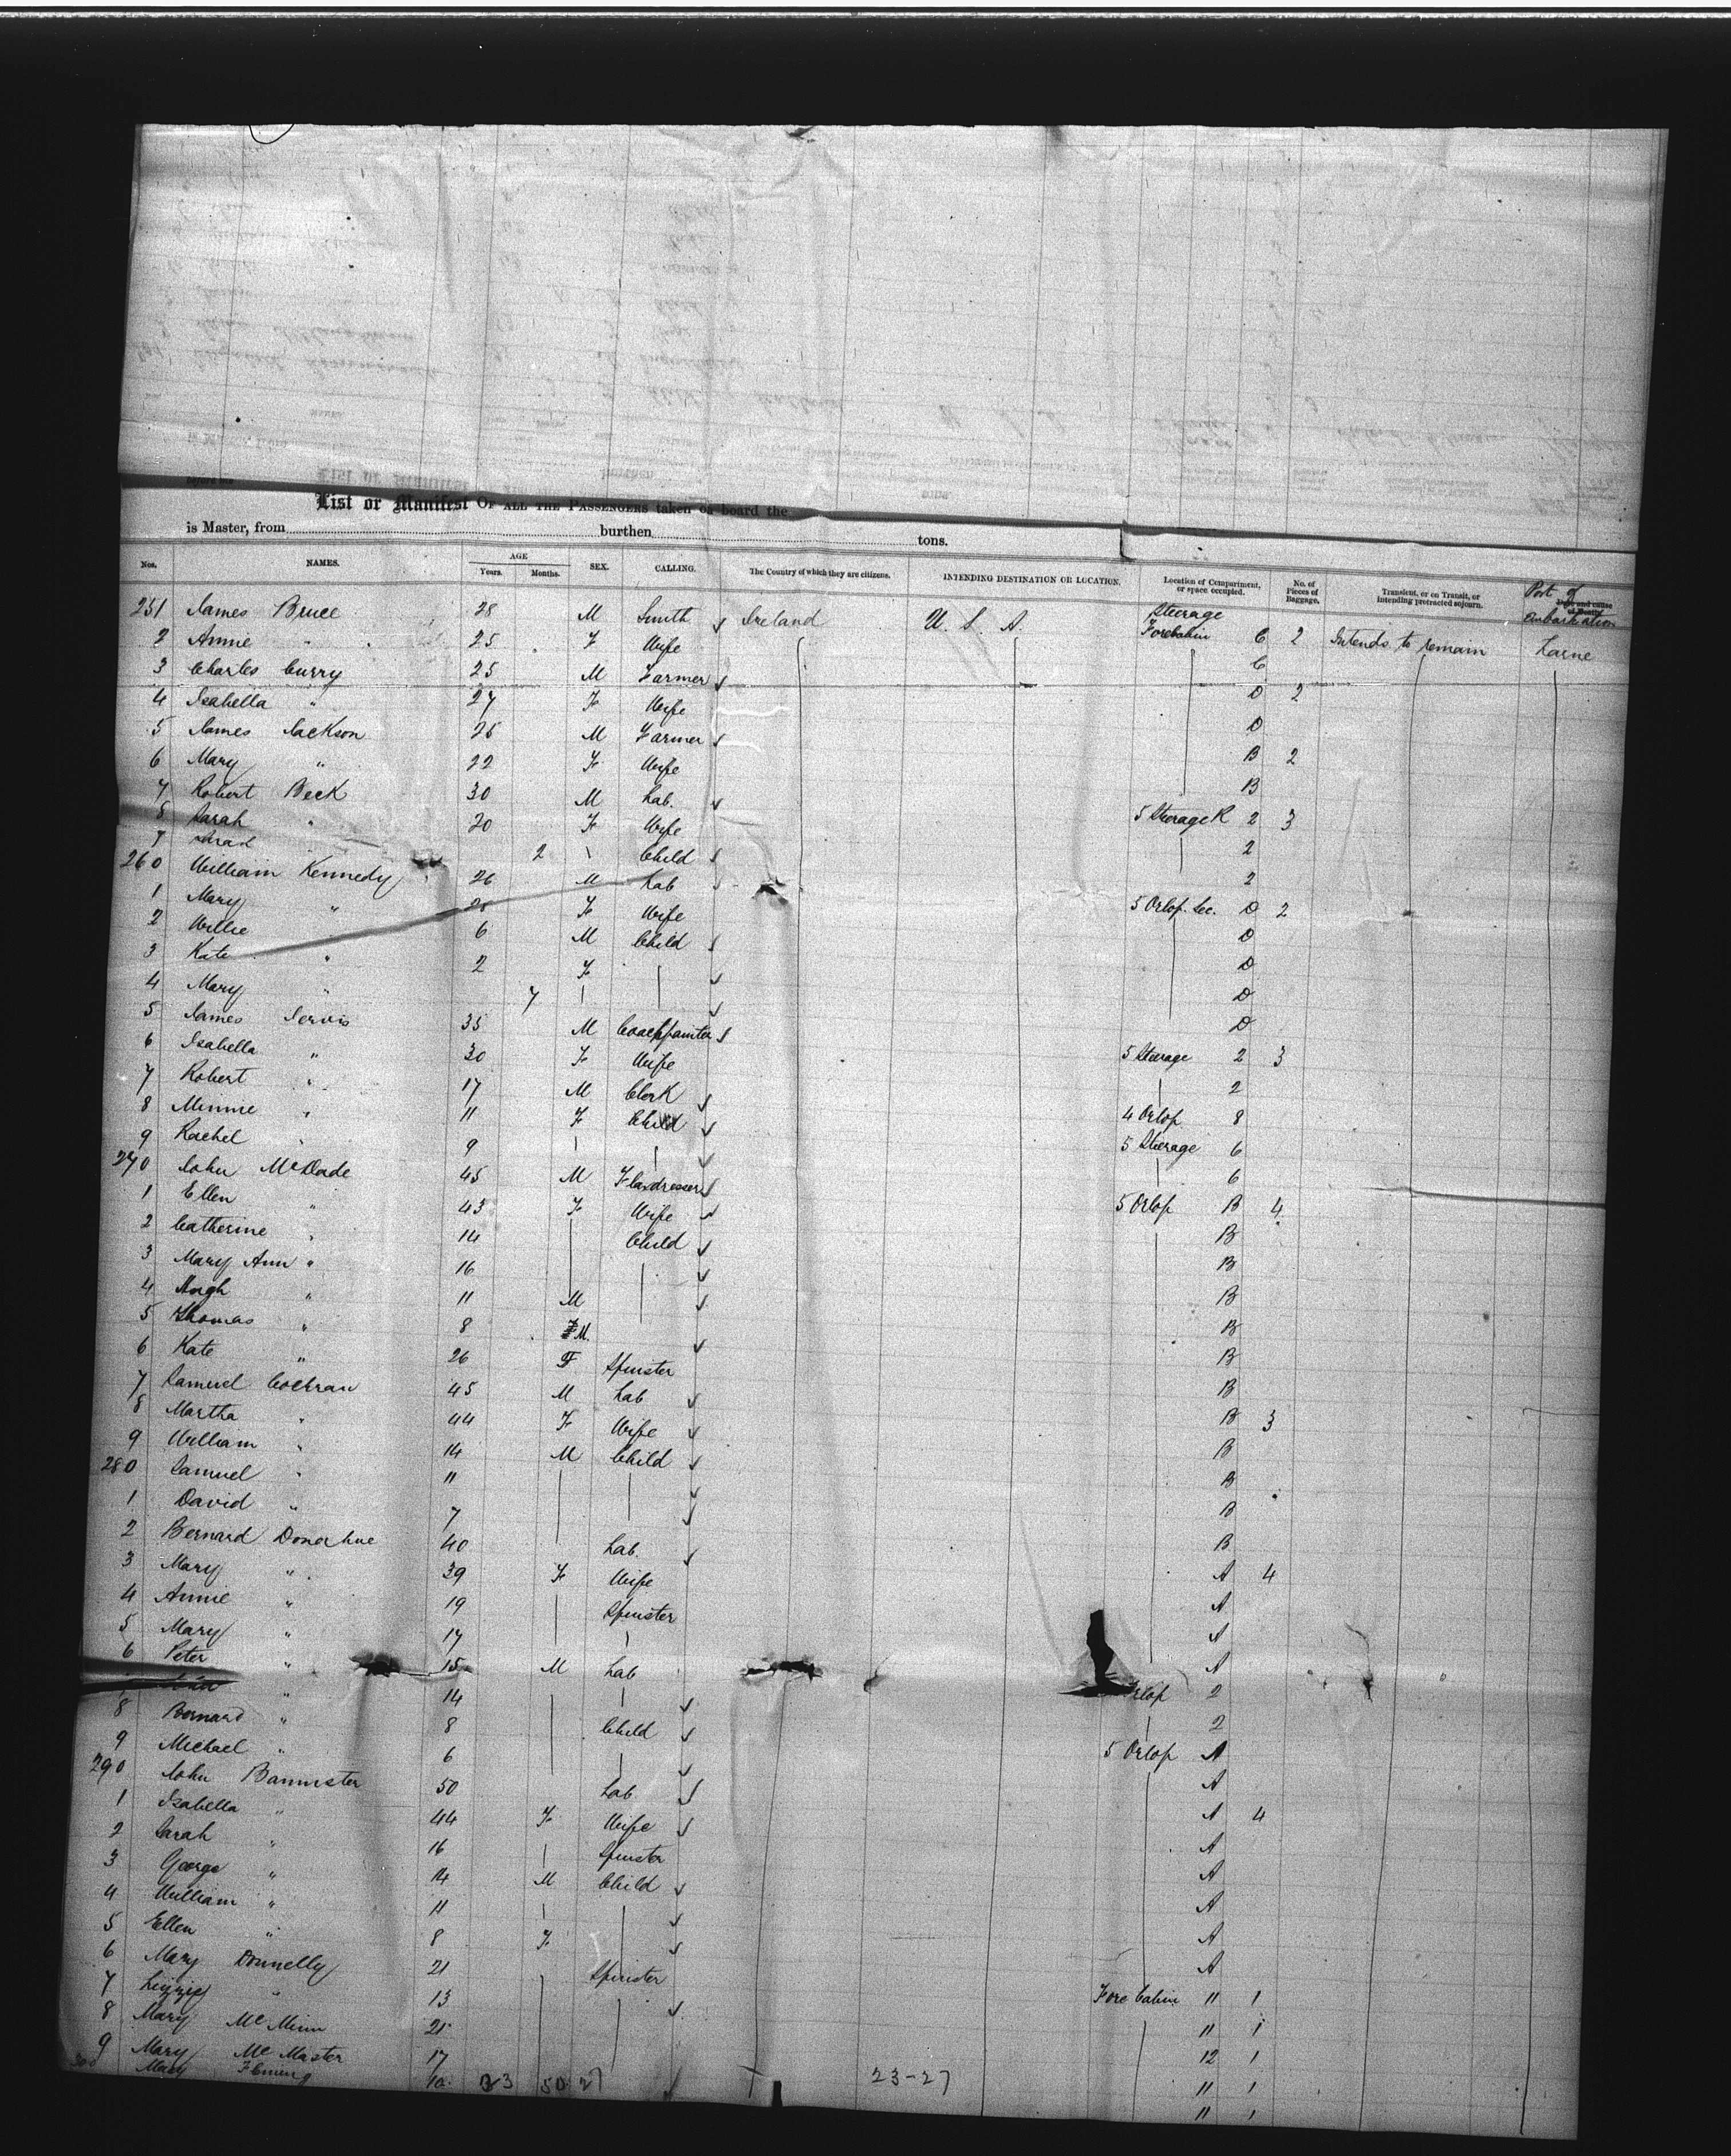 List or Manifest OF ALL THE PASSENGERS taken on board the
is Master, from burthen tons.
Nos. NAMES. AGE Years. Months. SEX. CALLING. The Country of which they are citizens. INTENDING DESTINATION OR LOCATION. Location of Compartment, or space occupied. No. of Pieces of Baggage. Transient, or on Transit, or intending protracted sojourn. Port of embarkation
251 James Bruce 28 M Smith Ireland U. S. A. Steerage Forecabin C 2 Intends to remain Larne
2 Annie " 25 F Wife C
3 Charles Curry 25 M Farmer D 2
4 Isabella " 27 F Wife D
5 James Jackson 25 M Farmer B 2
6 Mary " 22 F Wife B
7 Robert Beck 30 M Lab. 5 Steerage R 2 3
8 Sarah " 20 F Wife 2
9 2 Child 2
260 William Kennedy 26 M Lab 5 Orlop. Sec. D 2
1 Mary " F Wife D
2 Willie 6 M Child D
3 Kate " 2 F D
4 Mary " 7 D
5 James Jervis 35 M Coachpainter 5 Steerage 2 3
6 Isabella " 30 F Wife 2
7 Robert " 17 M Clerk 4 Orlop 8
8 Minnie " 11 F Child 5 Steerage 6
9 Rachel " 9 6
270 John McDade 45 M Flaxdresser 5 Orlop B 4
1 Ellen " 43 F Wife B
2 Catherine " 14 Child B
3 Mary Ann " 16 B
4 Hugh " 11 M B
5 Thomas " 8 M. B
6 Kate " 26 F Spinster B
7 Samuel Cochran 45 M Lab B 3
8 Martha " 44 F Wife B
9 William " 14 M Child B
280 Samuel " 11 B
1 David " 7 B
2 Bernard Donachue 40 Lab. A 4
3 Mary " 39 F Wife A
4 Annie " 19 Spinster A
5 Mary " 17 A
6 Peter " 15 M Lab Orlop 2
" 14 2
8 Bernard " 8 Child 5 Orlop A
9 Michael " 6 A
290 John Bannister 50 Lab A 4
1 Isabella " 44 F Wife A
2 Sarah " 16 Spinster A
3 George " 14 M Child A
4 William " 11 A
5 Ellen " 8 F A
6 Mary Donnelly 21 Spinster Fore Cabin 11 1
7 Lizzie " 13 11 1
8 Mary McMinn 21 12 1
9 Mary McMaster 17 11 1
300 Mary 11 1
23-27